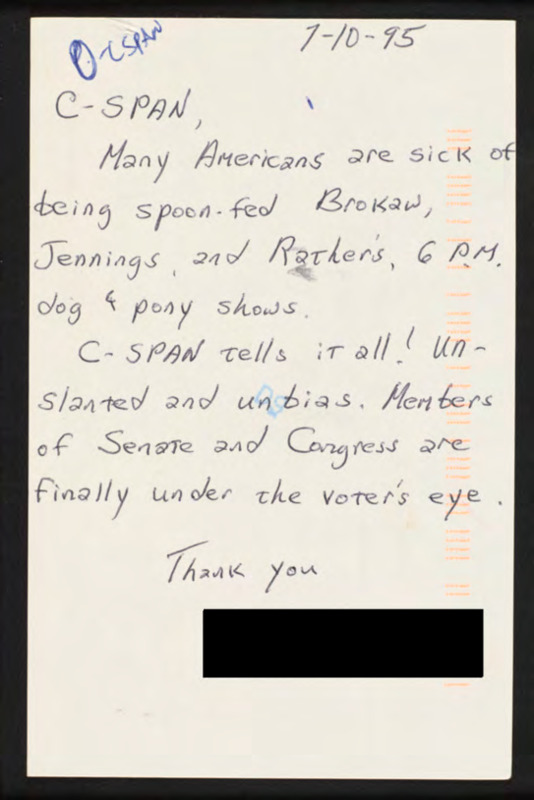 O-CSPAN
7-10-95
C-SPAN,
Many Americans are sick of
being spoon-fed Brokaw,
Jennings, and Rather's, 6 P.M.
dog & pony shows.
C-SPAN tells it all! Un-
slanted and unbias. Members
of Senate and Congress are
finally under the voter's eye.
Thank you